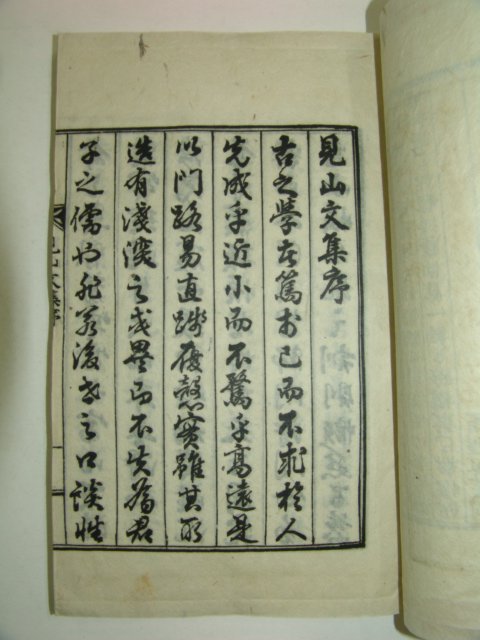 見山文集序
古之學者篤於己而不求於人
先成乎近小而不驁乎高遠是
以門路易直踐履慤實雖其所
造有淺深之或異而不失爲君
子之儒也非若後世之口談性
見山文集序